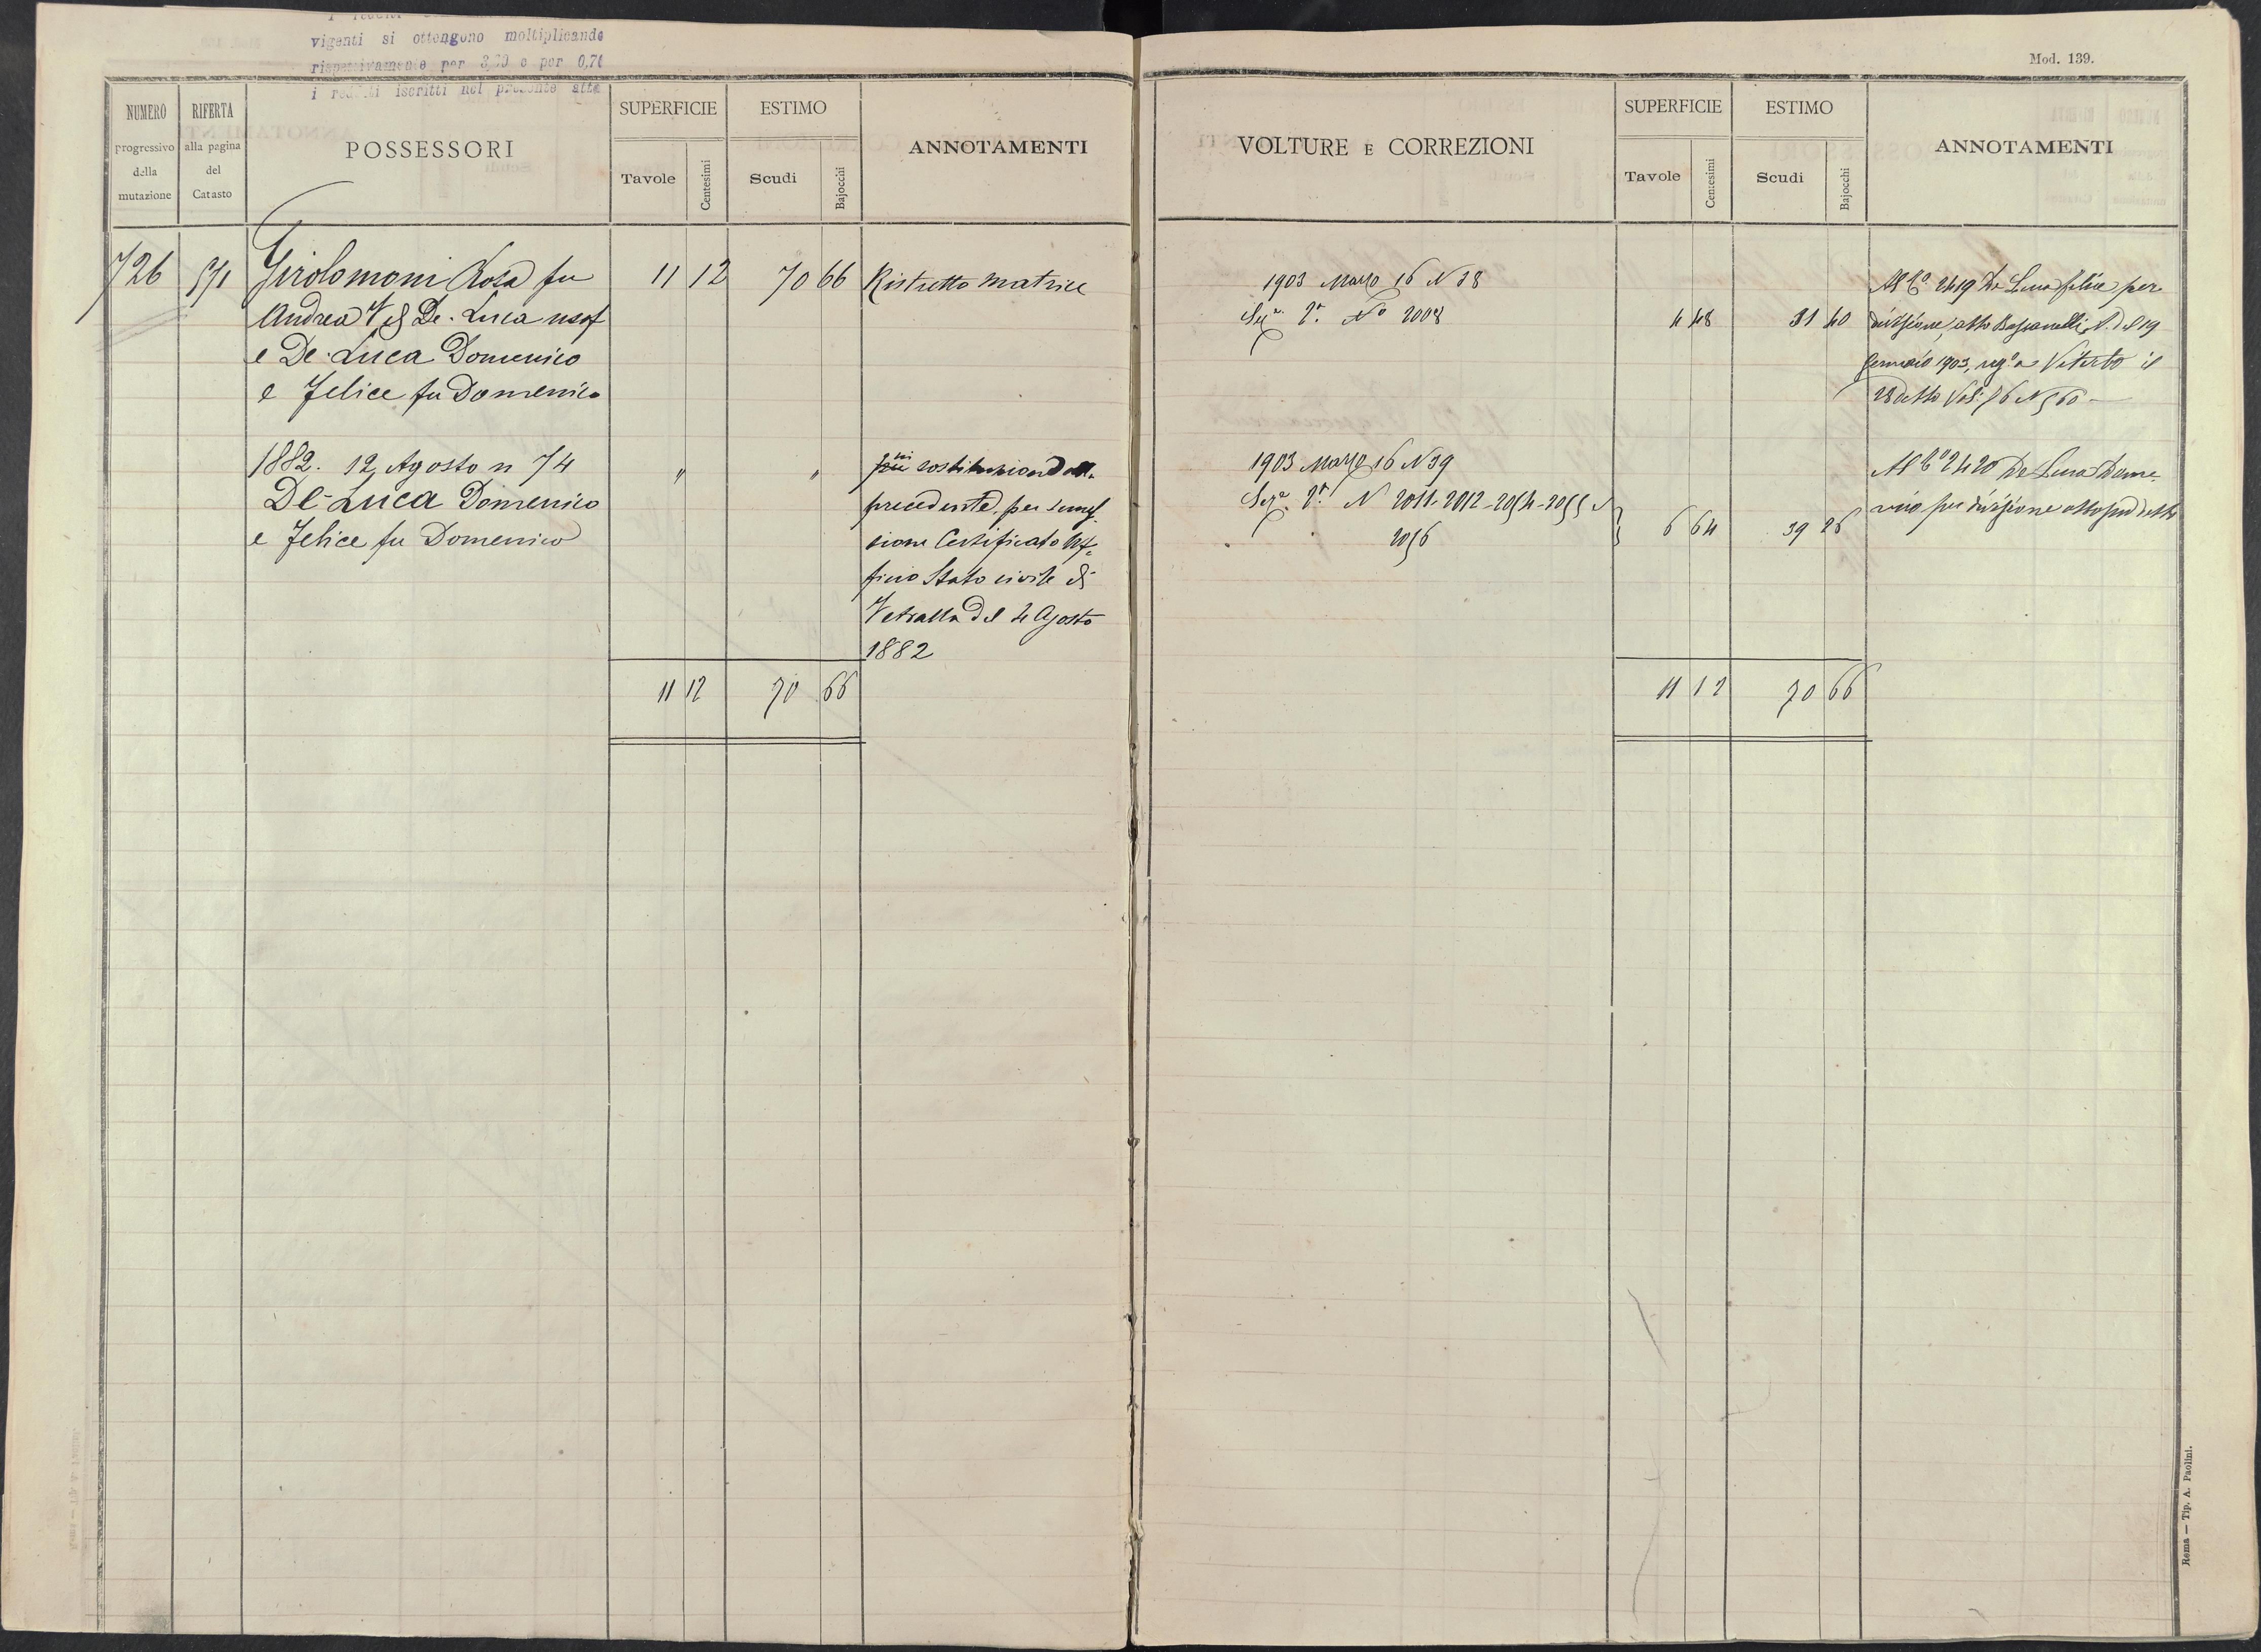 vigenti si ottengono moltiplicando
rispettivamente per 3,70 e per 0,70
i redditi iscritti nel presente
Mod. 139.
NUMERO progressivo della mutazione
RIFERTA alla pagina del Catasto
POSSESSORI
SUPERFICIE
Tavole
Centesimi
ESTIMO
Scudi
Bajocchi
ANNOTAMENTI
726 571 Girolomoni Rosa fu 11 12 70 66 Ristretto Matrice
Andrea V. di De-Luca usuf
e De-Luca Domenico
e Felice fu Domenico
1882. 12 Agosto n 74 " " in sostituzione della
De-Luca Domenico precedente, per
e Felice fu Domenico sione Certificato Uf-
ficio Stato civile di
Vetralla del 4 Agosto
1882
11 12 70 66
VOLTURE E CORREZIONI
SUPERFICIE
Tavole
Centesimi
ESTIMO
Scudi
Bajocchi
ANNOTAMENTI
1903 Marzo 16 N 38 Al Co. 2419 De Luca Felice per
Sez.e 2a. No 2008 4 48 31 40 divisione, atto N. del 19
Gennaio 1903, rego a Viterbo il
28 detto Vol. 56 N 560
1903 Marzo 16 N 39 Al Co 2420 De Luca Dome-
Sez.e 2a. N 2011-2012-2054-2055 nico per divisione atto
2056 6 64 39 26
11 12 70 66
Roma — Tip. A. Paolini.